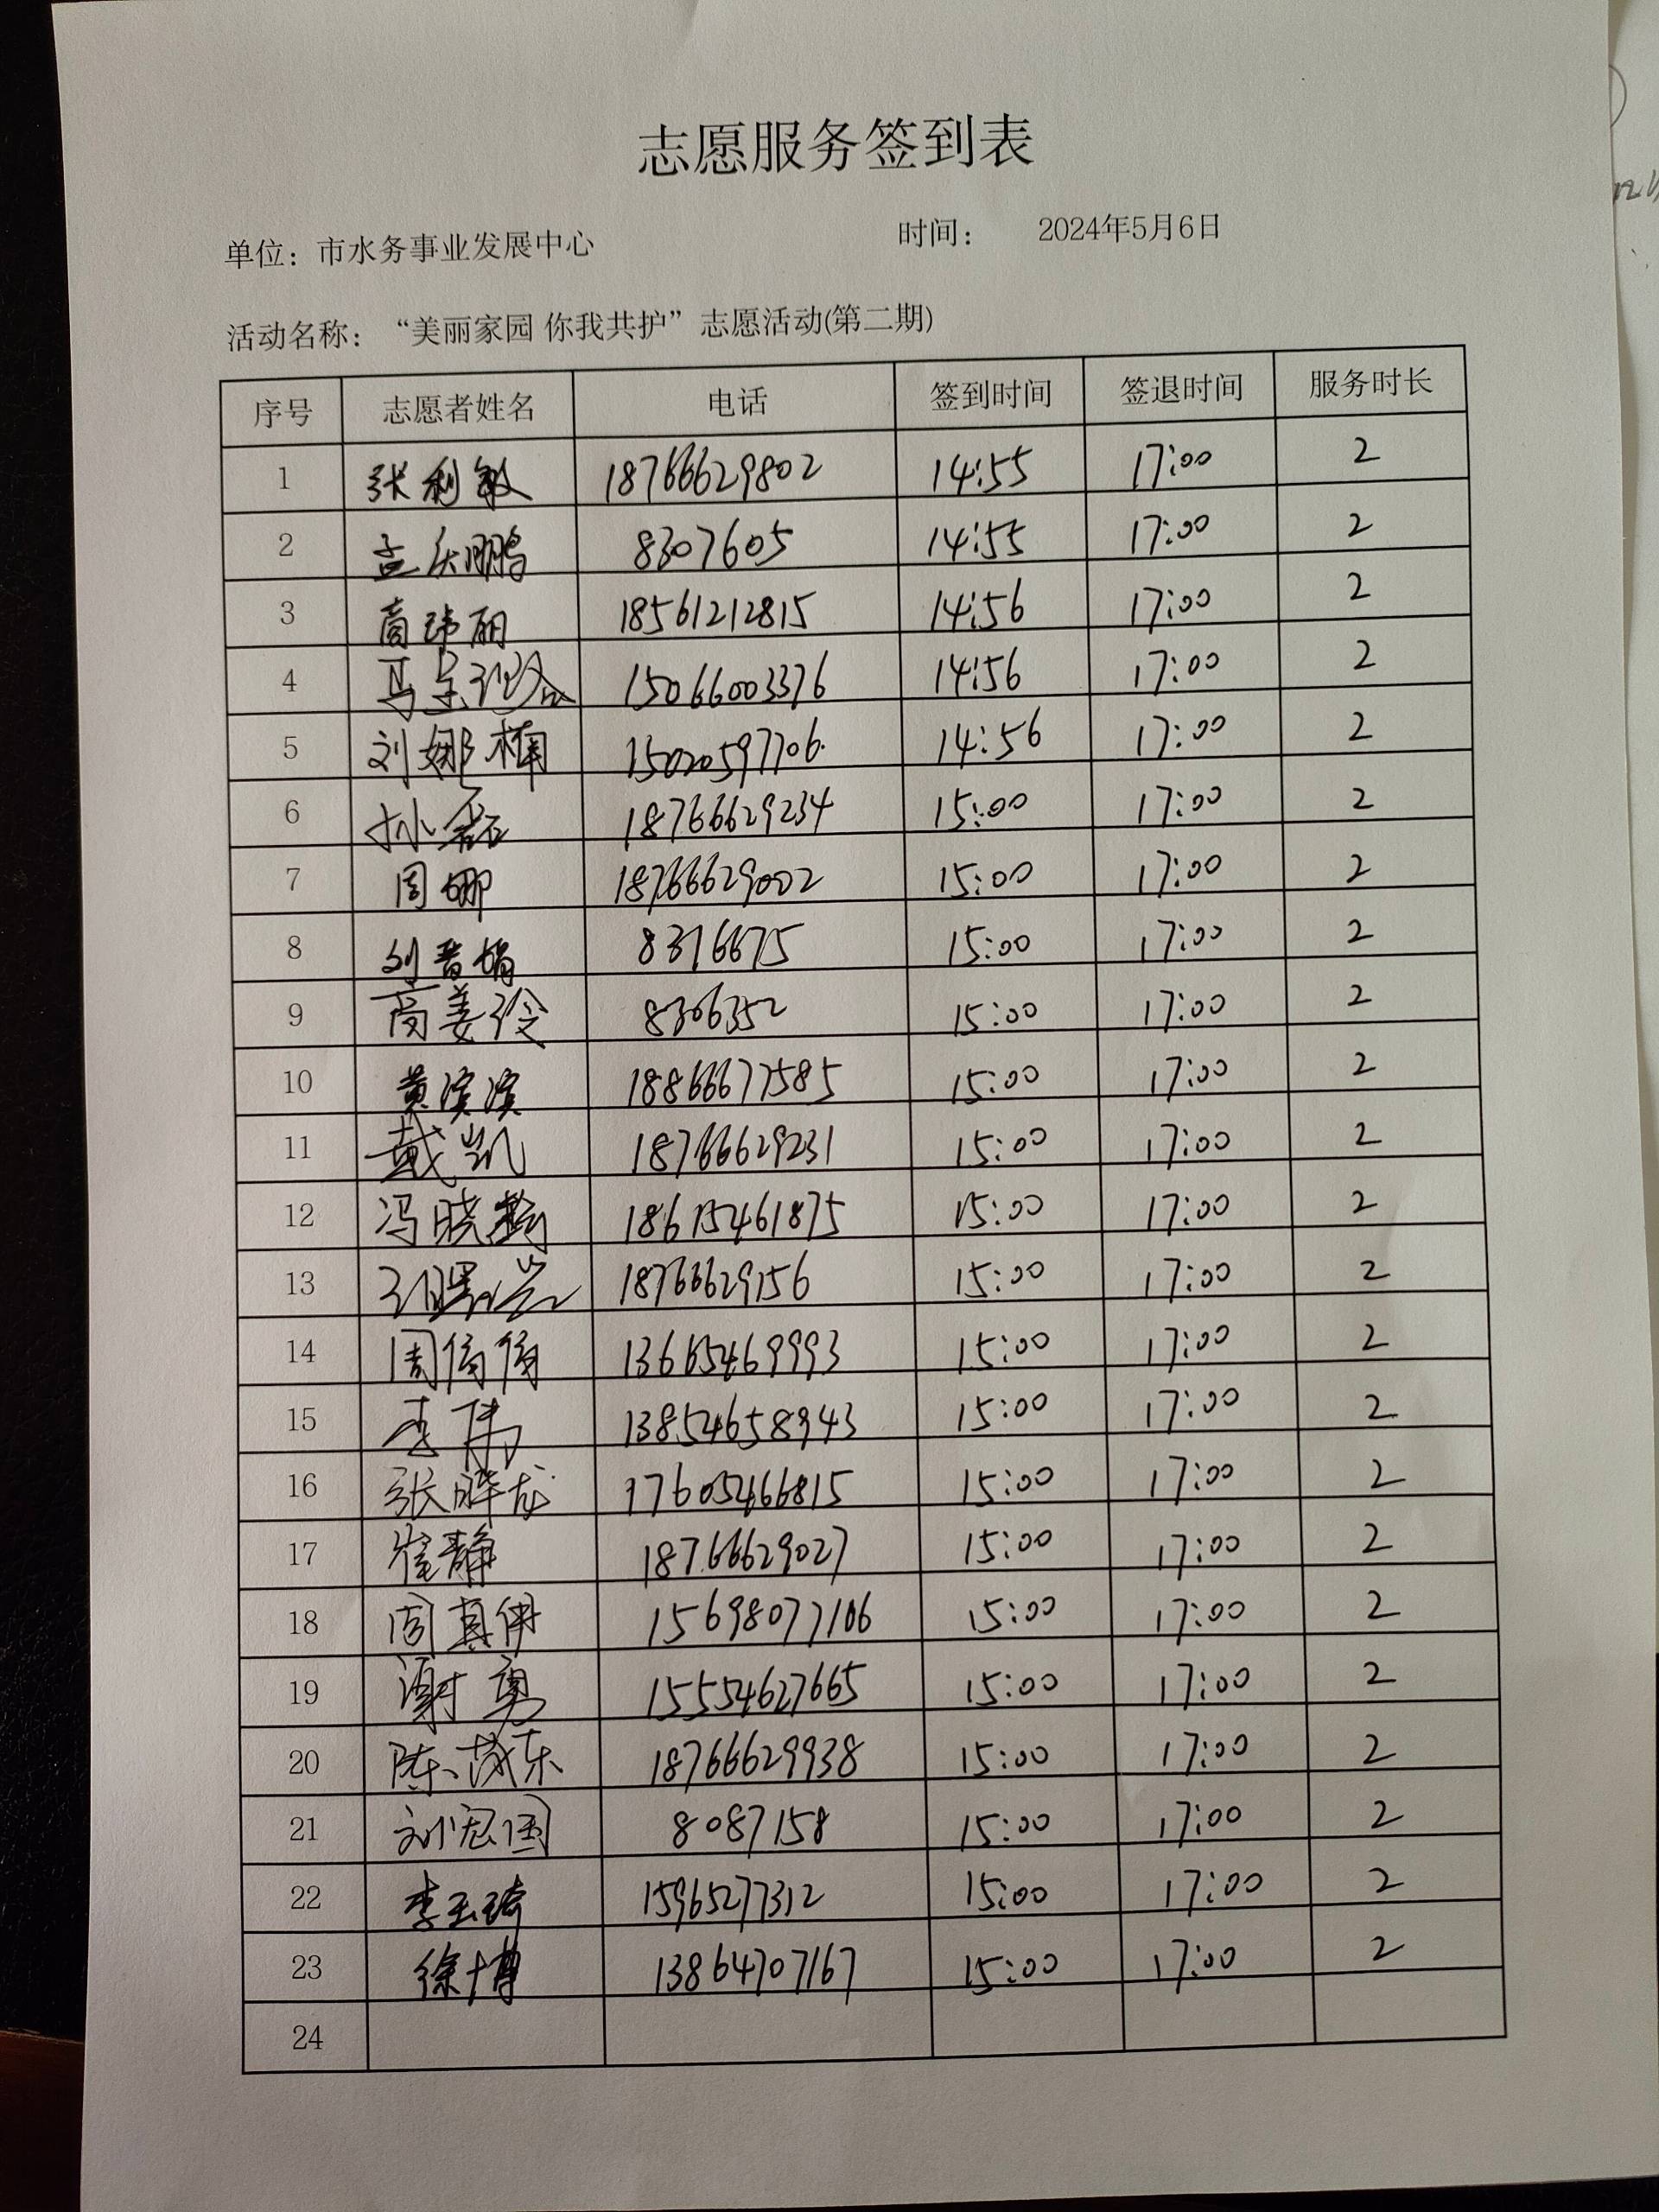 志愿服务签到表
单位：市水务事业发展中心 时间： 2024年5月6日
活动名称：“美丽家园 你我共护”志愿活动(第二期)
序号 志愿者姓名 电话 签到时间 签退时间 服务时长
1 张利敏 18766629802 14:55 17:00 2
2 孟庆鹏 8307605 14:55 17:00 2
3 商玮丽 18561212815 14:56 17:00 2
4 马 15066003376 14:56 17:00 2
5 刘娜楠 15020597706 14:56 17:00 2
6 孙磊 18766629234 15:00 17:00 2
7 周娜 18766629002 15:00 17:00 2
8 刘晋娟 8376675 15:00 17:00 2
9 商姜玲 8306352 15:00 17:00 2
10 黄滨滨 18866677585 15:00 17:00 2
11 戴凯 18766629231 15:00 17:00 2
12 冯晓 18615461875 15:00 17:00 2
13 18766629156 15:00 17:00 2
14 周倩倩 13665469993 15:00 17:00 2
15 李伟 13854658943 15:00 17:00 2
16 张晔龙 17605466815 15:00 17:00 2
17 崔静 18766629027 15:00 17:00 2
18 周真伊 15698077106 15:00 17:00 2
19 谢勇 15554627665 15:00 17:00 2
20 陈茂东 18766629938 15:00 17:00 2
21 刘宏国 8087158 15:00 17:00 2
22 李玉琦 15965277312 15:00 17:00 2
23 徐博 13864707167 15:00 17:00 2
24